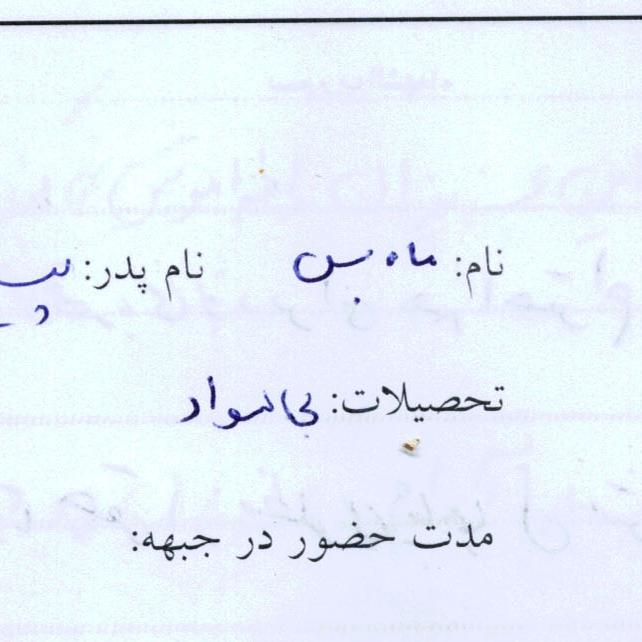 نام: ماه بس نام پدر:
تحصیلات: بی سواد
مدت حضور در جبهه: